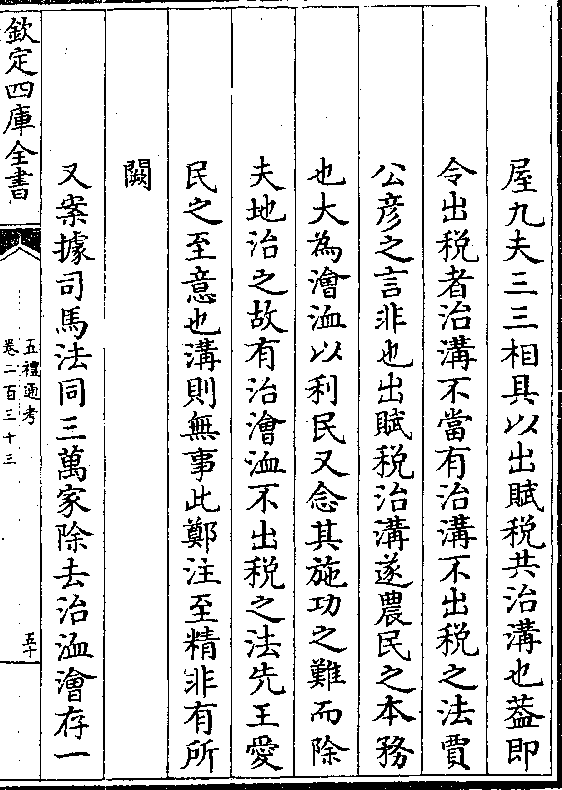 屋九夫三三相具以出賦税共治溝也葢即
令出税者治溝不當有治溝不出税之法賈
公彦之言非也出賦税治溝遂農民之本務
也大為澮洫以利民又念其施功之難而除
夫地治之故有治澮洫不出税之法先王愛
民之至意也溝則無事此鄭注至精非有所
闕
又案據司馬法同三萬家除去治洫澮存一
欽定四庫全書
五禮通考
卷二百三十三
五十